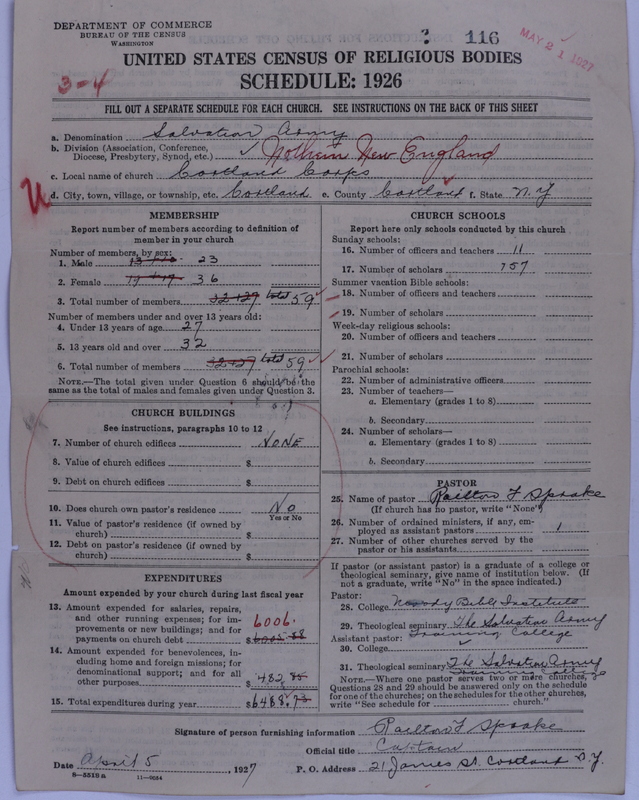 DEPARTMENT OF COMMERCE
BUREAU OF THE CENSUS
WASHINGTON
116
MAY 21 1927
UNITED STATES CENSUS OF RELIGIOUS BODIES
3-4
SCHEDULE: 1926
FILL OUT A SEPARATE SCHEDULE FOR EACH CHURCH. SEE INSTRUCTIONS ON THE BACK OF THIS SHEET
a. Denomination Salvation Army
b. Division (Association, Conference, Diocese, Presbytery, Synod, etc.) ✓ Nothern New England
c. Local name of church Cortland Corps
d. City, town, village, or township, etc. Cortland e. County Cortland f. State N.Y
MEMBERSHIP
Report number of members according to definition of
member in your church
Number of members, by sex:
1. Male 23
2. Female 36
3. Total number of members 32+27 total 59
Number of members under and over 13 years old:
4. Under 13 years of age 27
5. 13 years old and over 32
6. Total number of members 32+27 total 59
NOTE.—The total given under Question 6 should be the
same as the total of males and females given under Question 3.
CHURCH BUILDINGS
See instructions, paragraphs 10 to 12
7. Number of church edifices NONE
8. Value of church edifices $
9. Debt on church edifices $
10. Does church own pastor's residence No
Yes or No
11. Value of pastor's residence (if owned by
church) $
12. Debt on pastor's residence (if owned by
church) $
EXPENDITURES
Amount expended by your church during last fiscal year
13. Amount expended for salaries, repairs,
and other running expenses; for im-
provements or new buildings; and for
payments on church debt $ 6006.
14. Amount expended for benevolences, in-
cluding home and foreign missions; for
denominational support; and for all
other purposes $ 482
15. Total expenditures during year $6488.73
CHURCH SCHOOLS
Report here only schools conducted by this church
Sunday schools:
16. Number of officers and teachers 11
17. Number of scholars 757
Summer vacation Bible schools:
18. Number of officers and teachers
19. Number of scholars
Week-day religious schools:
20. Number of officers and teachers
21. Number of scholars
Parochial schools:
22. Number of administrative officers
23. Number of teachers—
a. Elementary (grades 1 to 8)
b. Secondary
24. Number of scholars—
a. Elementary (grades 1 to 8)
b. Secondary
PASTOR
25. Name of pastor Railton F Spraake
(If church has no pastor, write "None")
26. Number of ordained ministers, if any, em-
ployed as assistant pastors 1
27. Number of other churches served by the
pastor or his assistants
If pastor (or assistant pastor) is a graduate of a college or
theological seminary, give name of institution below. (If
not a graduate, write "No" in the space indicated.)
Pastor:
28. College Bible Institute
29. Theological seminary The Salvation Army
Assistant pastor: Training College
30. College
31. Theological seminary The Salvation Army
Training College
NOTE.—Where one pastor serves two or more churches,
Questions 28 and 29 should be answered only on the schedule
for one of the churches; on the schedules for the other churches,
write "See schedule for church."
Signature of person furnishing information Railton F Spraake
Official title Captain
Date April 5, 1927 P. O. Address 21 James St. Cortland N.Y.
8—5518a 11—9034